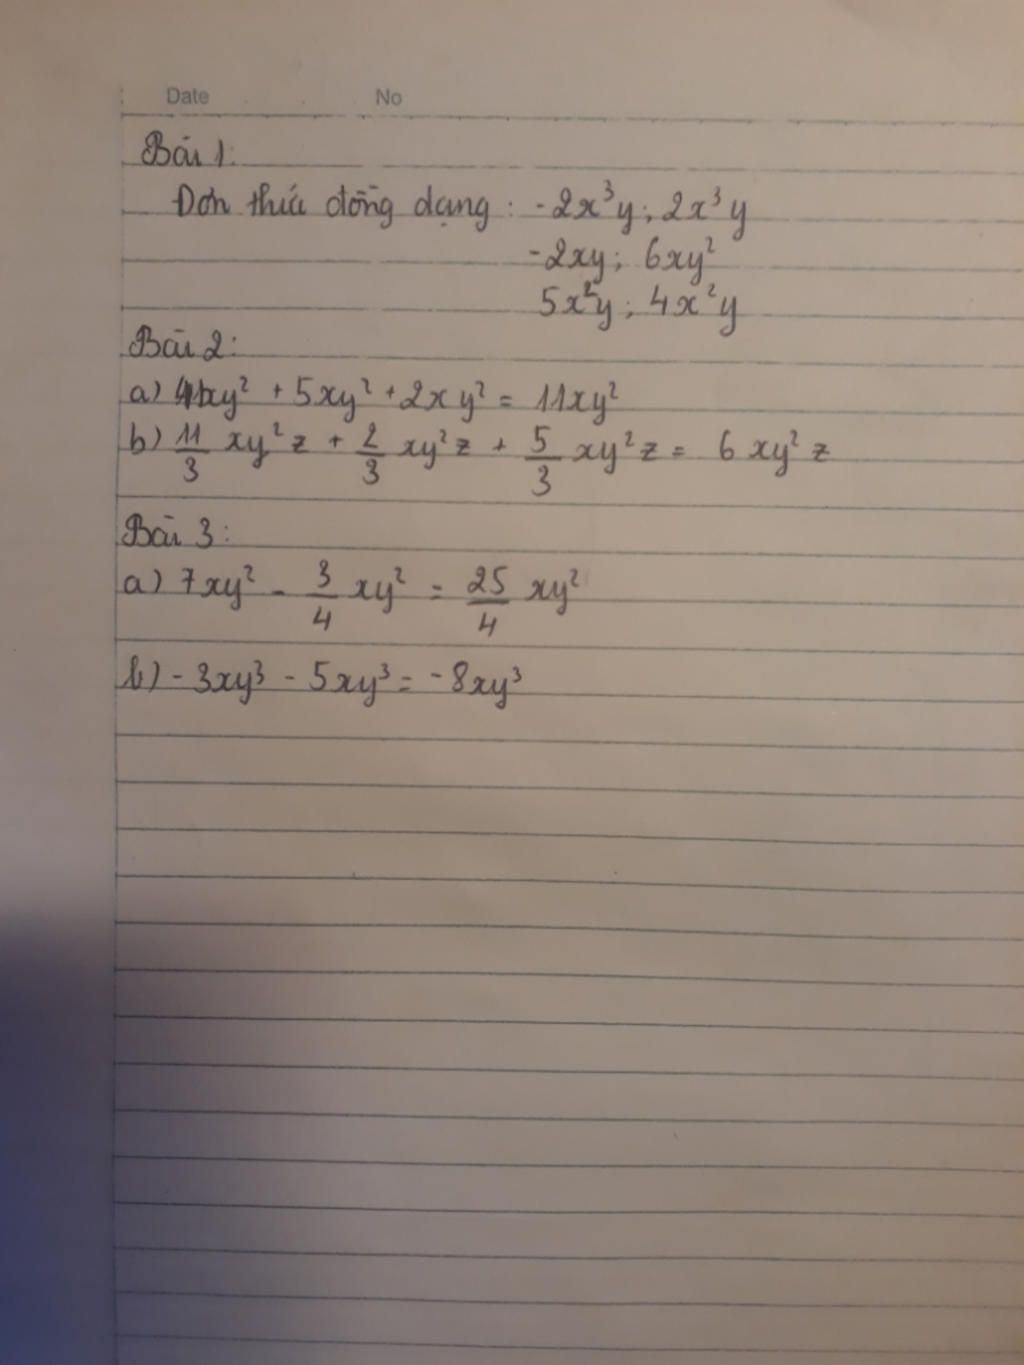 Date No
Bài 1:
Đơn thức đồng dạng : -2x³y ; 2x³y
-2xy ; 6xy²
5x²y ; 4x²y
Bài 2:
a) 4xy² + 5xy² + 2xy² = 11xy²
b) 11/3 xy²z + 2/3 xy²z + 5/3 xy²z = 6xy²z
Bài 3:
a) 7xy² - 3/4 xy² = 25/4 xy²
b) -3xy³ - 5xy³ = -8xy³